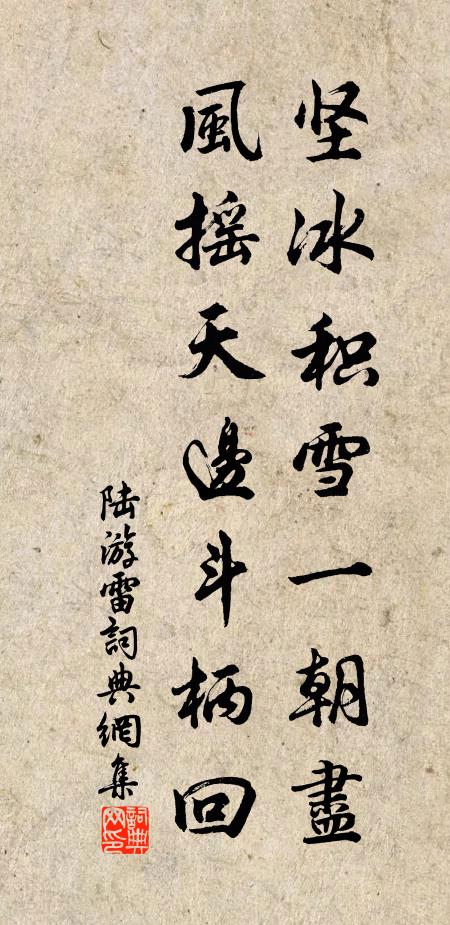 坚冰积雪一朝盡
風摇天邊斗柄回
陆游雷詞典網集
詞典网印